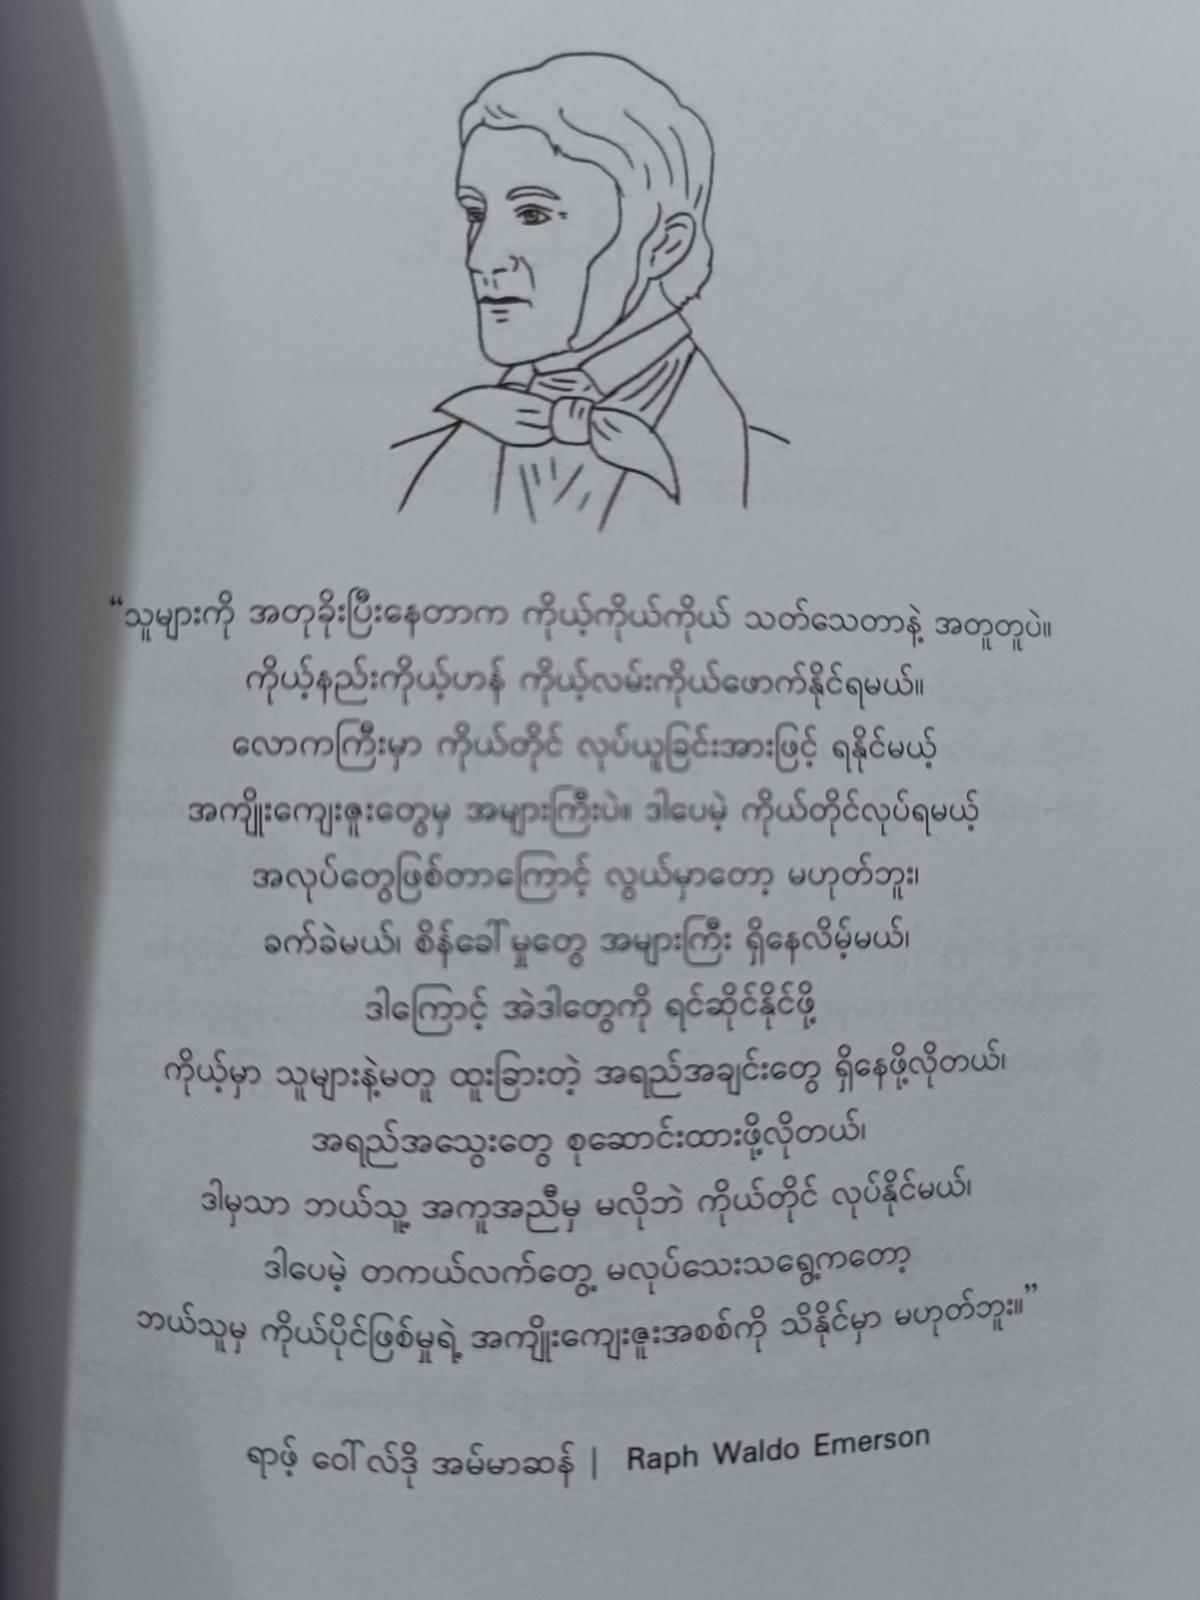 “သူများကို အတုခိုးပြီးနေတာက ကိုယ့်ကိုယ်ကိုယ် သတ်သေတာနဲ့ အတူတူပဲ။
ကိုယ့်နည်းကိုယ့်ဟန် ကိုယ့်လမ်းကိုယ်ဖောက်နိုင်ရမယ်။
လောကကြီးမှာ ကိုယ်တိုင် လုပ်ယူခြင်းအားဖြင့် ရနိုင်မယ့်
အကျိုးကျေးဇူးတွေမှ အများကြီးပဲ။ ဒါပေမဲ့ ကိုယ်တိုင်လုပ်ရမယ့်
အလုပ်တွေဖြစ်တာကြောင့် လွယ်မှာတော့ မဟုတ်ဘူး၊
ခက်ခဲမယ်၊ စိန်ခေါ်မှုတွေ အများကြီး ရှိနေလိမ့်မယ်၊
ဒါကြောင့် အဲဒါတွေကို ရင်ဆိုင်နိုင်ဖို့
ကိုယ့်မှာ သူများနဲ့မတူ ထူးခြားတဲ့ အရည်အချင်းတွေ ရှိနေဖို့လိုတယ်၊
အရည်အသွေးတွေ စုဆောင်းထားဖို့လိုတယ်၊
ဒါမှသာ ဘယ်သူ့ အကူအညီမှ မလိုဘဲ ကိုယ်တိုင် လုပ်နိုင်မယ်၊
ဒါပေမဲ့ တကယ်လက်တွေ့ မလုပ်သေးသရွေ့ကတော့
ဘယ်သူမှ ကိုယ်ပိုင်ဖြစ်မှုရဲ့ အကျိုးကျေးဇူးအစစ်ကို သိနိုင်မှာ မဟုတ်ဘူး။”
ရာဖ့် ဝေါ်လ်ဒို အမ်မာဆန် | Raph Waldo Emerson